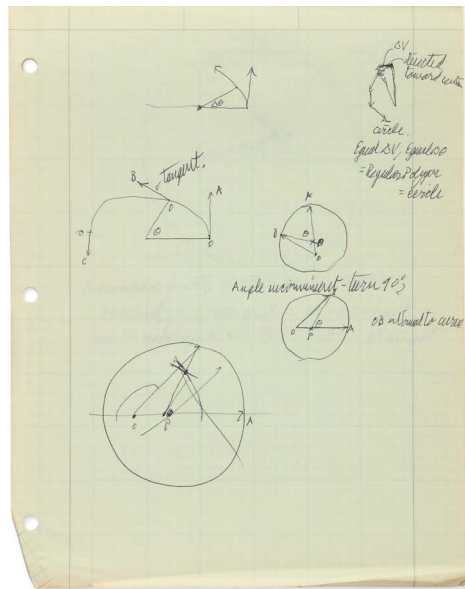 ΔV
directed
toward center
Δθ
circle.
Equal ΔV, Equal Δθ
= Regular Polygon
= circle
B
tangent.
A
θ
O
C
A
B
θ
P
O
Angle inconvenient - turn 90°
O
P
θ
A
OB is Normal to curve
O
P
A